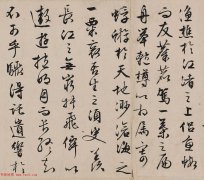 漁樵於江渚之上侣魚蝦
而友麋鹿駕一葉之扁
舟舉匏樽以相屬寄
蜉蝣於天地渺滄海之
一粟哀吾生之須臾羡
長江之無窮挾飛仙以
遨遊抱明月而長終知
不可乎驟得託遺響於